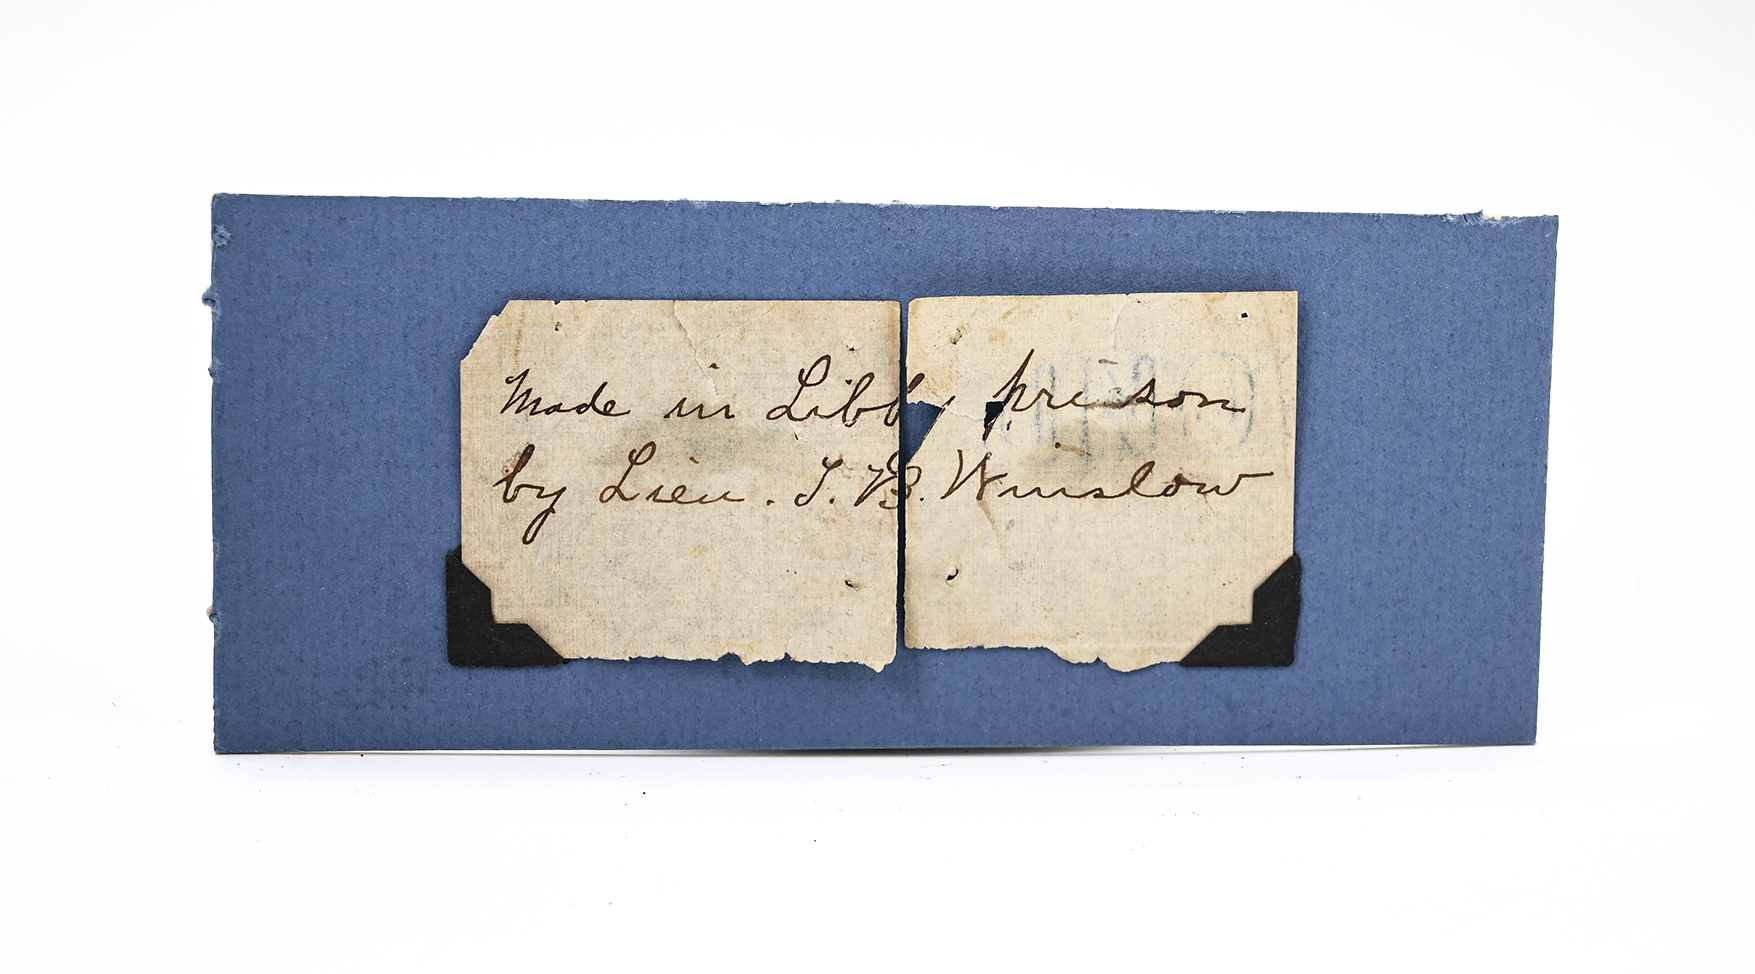 Made in Libby prison
by Lieu. I. B. Winslow